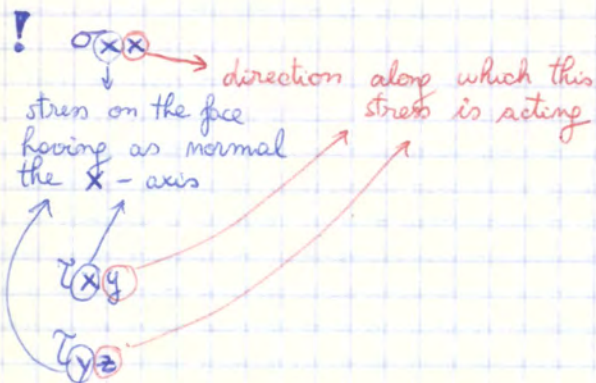 ! σxx
direction along which this
stress is acting
stress on the face
having as normal
the x-axis
τxy
τyz